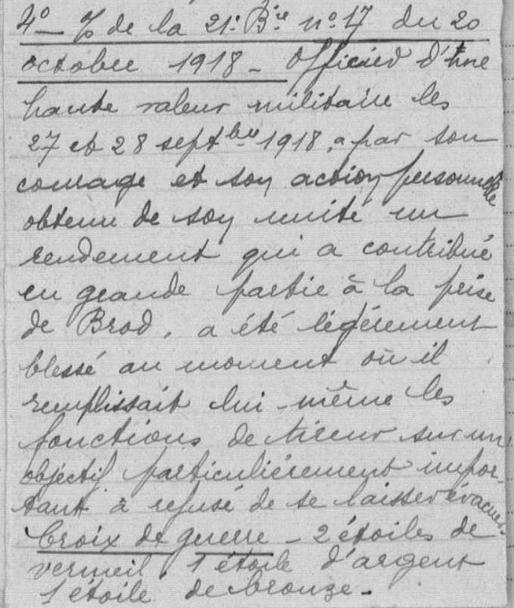 4º - % de la 21e Bie nº 17 du 20
octobre 1918 - Officier d'une
haute valeur militaire les
27 et 28 septbre 1918, a par son
courage et son action personnelle
obtenu de son unité un
rendement qui a contribué
en grande partie à la prise
de Brod, a été légèrement
blessé au moment où il
remplissait lui-même les
fonctions de tireur sur un
objectif particulièrement impor-
tant à refusé de se laisser évacuer
Croix de guerre - 2 étoiles de
vermeil, 1 étoile d'argent
1 étoile de bronze -